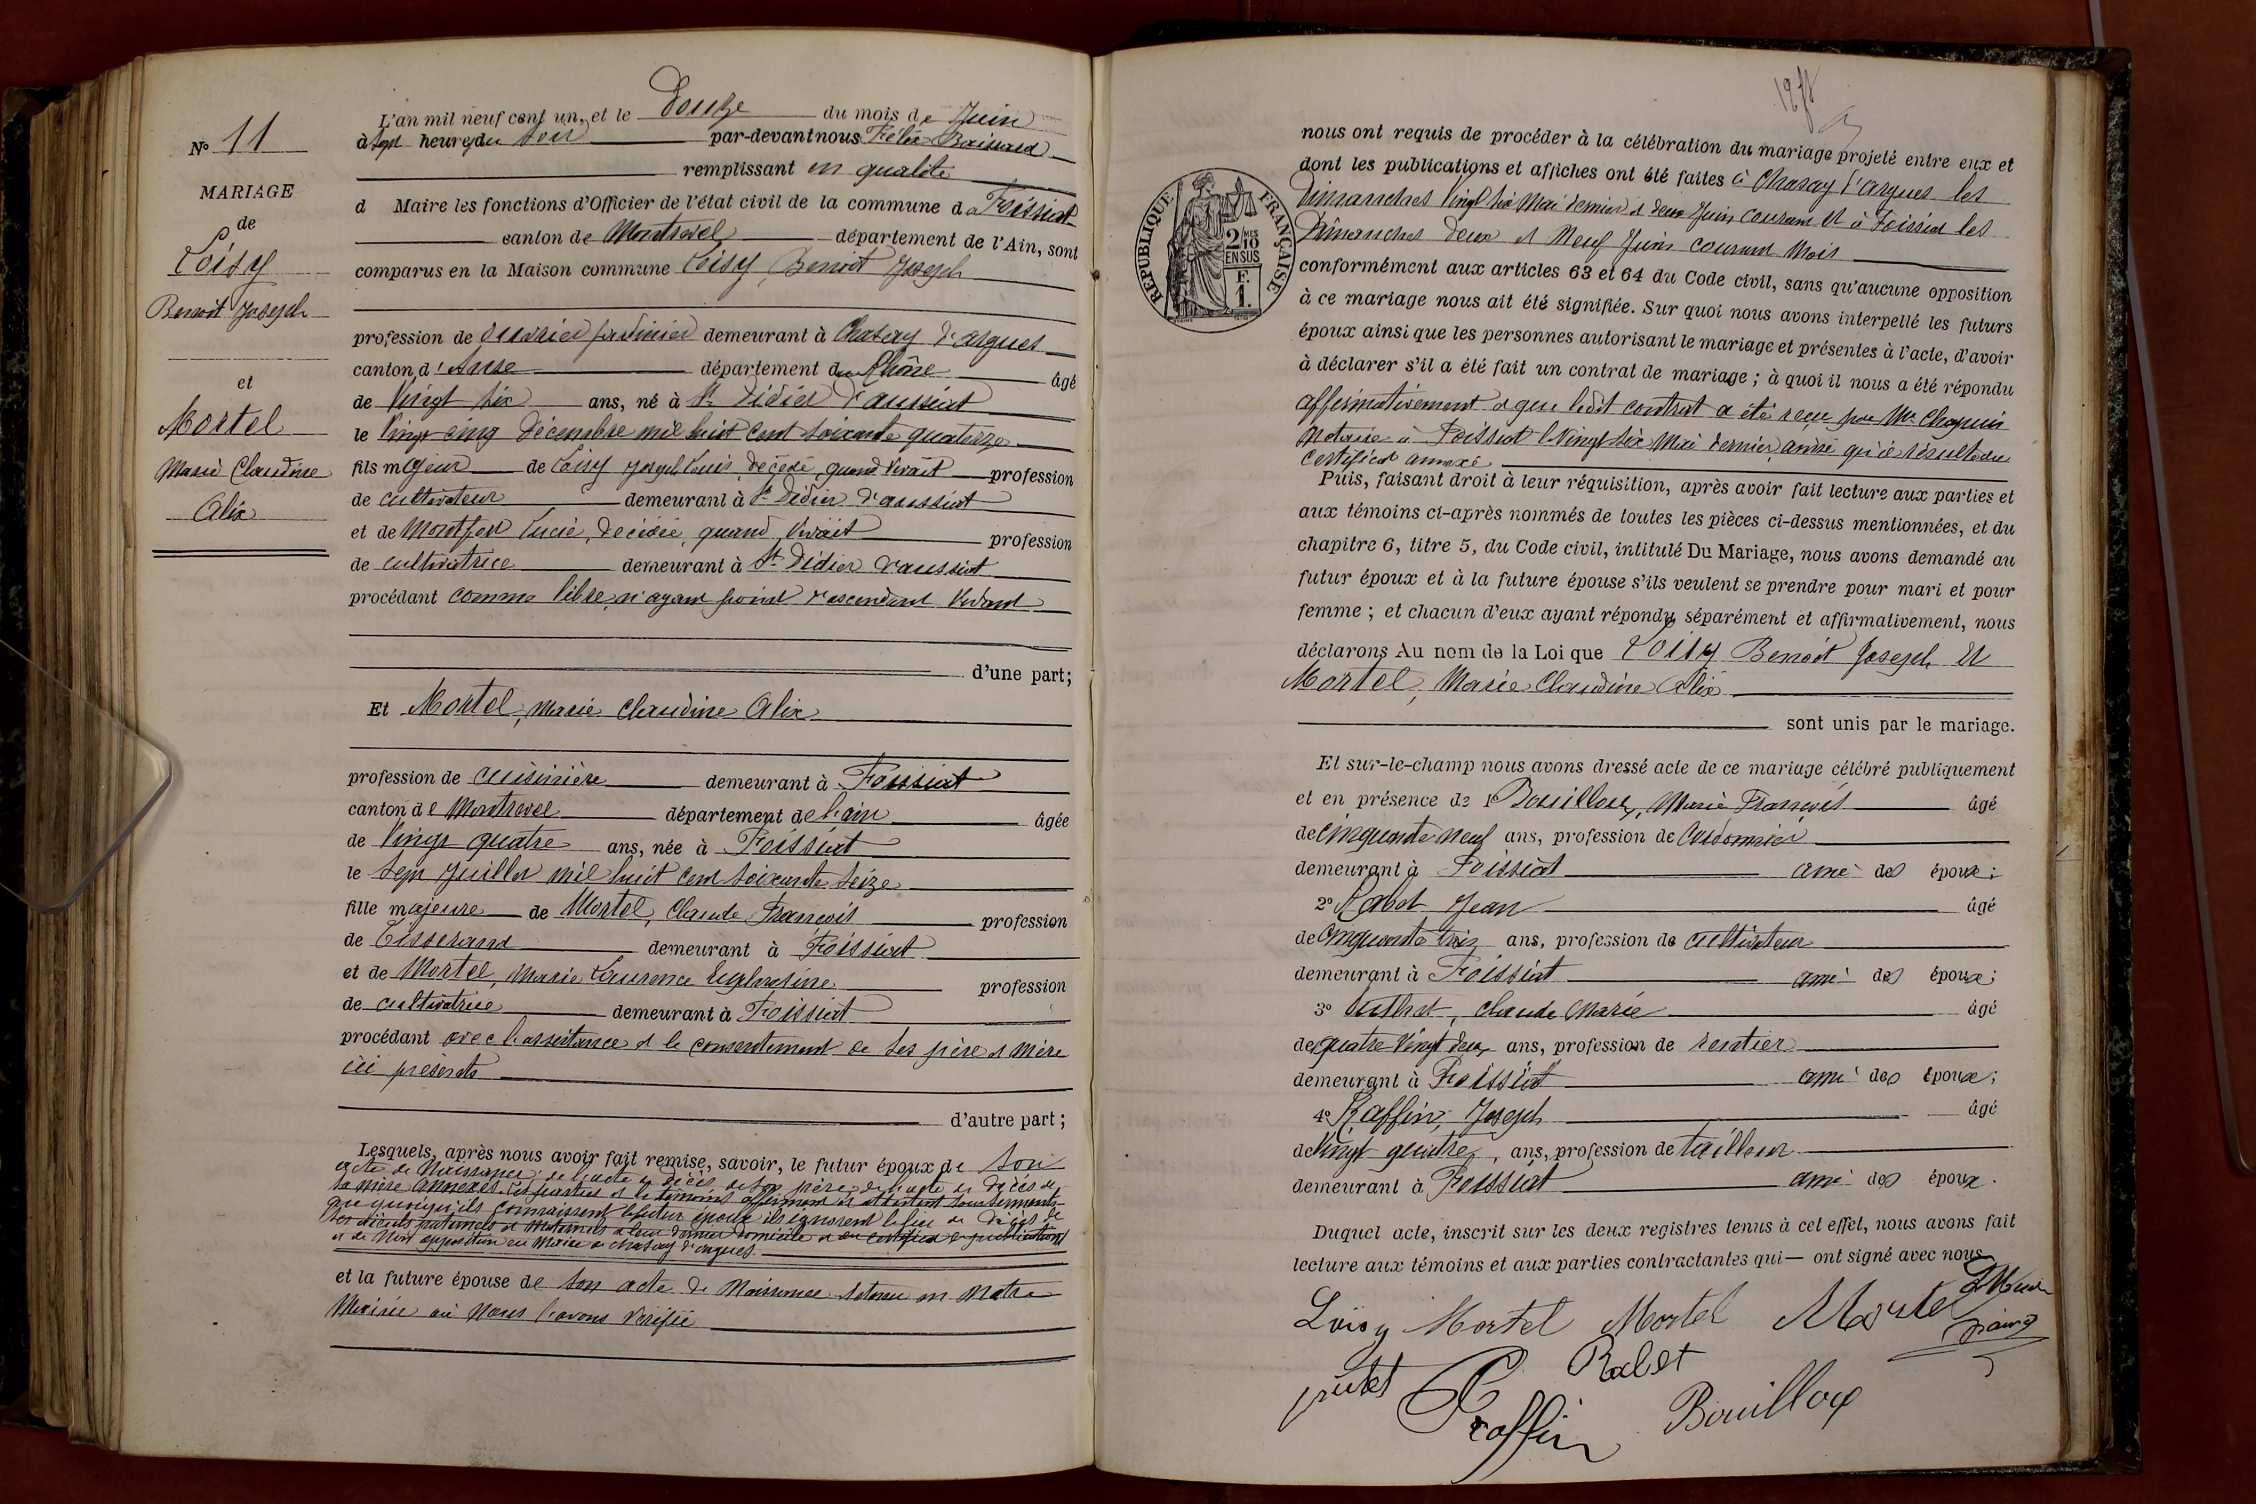 N° 11
MARIAGE
de
Loisy
Benoit Joseph
et
Mortel
Marie Claudine
Alix
L'an mil neuf cent un, et le Douze du mois de Juin
à sept heures du soir par-devant nous Félix
remplissant en qualité
d Maire les fonctions d'Officier de l'état civil de la commune de Foissiat
canton de Montrevel département de l'Ain, sont
comparus en la Maison commune Loisy, Benoit Joseph
profession de ouvrier jardinier demeurant à Chasay d'asgues
canton d'Anse département du Rhône âgé
de Vingt six ans, né à St Didier d'aussiat
le Vingt cinq Décembre mil huit cent soixante quatorze
fils majeur de Loisy Joseph Louis, décédé, quand vivait profession
de cultivateur demeurant à St Didier d'aussiat
et de Lucie, décédée, quand vivait profession
de cultivatrice demeurant à St Didier d'aussiat
procédant comme libre, n'ayant point d'ascendant vivant
d'une part;
Et Mortel, Marie Claudine Alix
profession de cuisinière demeurant à Foissiat
canton de Montrevel département de l'ain âgée
de Vingt quatre ans, née à Foissiat
le sept Juillet mil huit cent soixante seize
fille majeure de Mortel, Claude François profession
de Tisserand demeurant à Foissiat
et de Mortel, Marie Laurence Euphrosine profession
de cultivatrice demeurant à Foissiat
procédant avec l'assistance et le consentement de ses père et mère
ici présents
d'autre part;
Lesquels, après nous avoir fait remise, savoir, le futur époux de son
acte de Naissance, de l'acte de décès de son père, de l'acte de décès de
sa mère annexés. Les parties et les témoins affirment et attestent sous serment
que quoiqu'ils connaissent le futur époux ils ignorent le lieu de décès de
ses aïeuls paternels et maternels et leur dernier domicile et du certificat de publication
et de non opposition en Mairie de Chasay d'asgues
et la future épouse de son acte de Naissance retenu en notre
Mairie où nous l'avons vérifié
RÉPUBLIQUE FRANÇAISE
2 MES 10
EN SUS
F.
1.
nous ont requis de procéder à la célébration du mariage projeté entre eux et
dont les publications et affiches ont été faites à Chasay d'asgues les
Dimanches Vingt six Mai dernier et deux Juin courant et à Foissiat les
Dimanches deux et Neuf Juin courant Mois
conformément aux articles 63 et 64 du Code civil, sans qu'aucune opposition
à ce mariage nous ait été signifiée. Sur quoi nous avons interpellé les futurs
époux ainsi que les personnes autorisant le mariage et présentes à l'acte, d'avoir
à déclarer s'il a été fait un contrat de mariage; à quoi il nous a été répondu
affirmativement et que ledit contrat a été reçu par Me Chapuis
Notaire à Foissiat le Vingt six Mai dernier, ainsi qu'il résulte du
certificat annexé
Puis, faisant droit à leur réquisition, après avoir fait lecture aux parties et
aux témoins ci-après nommés de toutes les pièces ci-dessus mentionnées, et du
chapitre 6, titre 5, du Code civil, intitulé Du Mariage, nous avons demandé au
futur époux et à la future épouse s'ils veulent se prendre pour mari et pour
femme; et chacun d'eux ayant répondu séparément et affirmativement, nous
déclarons Au nom de la Loi que Loisy Benoit Joseph et
Mortel, Marie Claudine Alix
sont unis par le mariage.
Et sur-le-champ nous avons dressé acte de ce mariage célébré publiquement
et en présence de 1° Bouilloux, Marie François âgé
de cinquante neuf ans, profession de Cordonnier
demeurant à Foissiat ami des époux;
2° Rabot Jean âgé
de cinquante trois ans, profession de cultivateur
demeurant à Foissiat ami des époux;
3° Claude Marie âgé
de quatre Vingt deux ans, profession de rentier
demeurant à Foissiat ami des époux;
4° Raffin, Joseph âgé
de Vingt quatre, ans, profession de tailleur
demeurant à Foissiat ami des époux.
Duquel acte, inscrit sur les deux registres tenus à cet effet, nous avons fait
lecture aux témoins et aux parties contractantes qui — ont signé avec nous
Loisy Mortel Mortel Mortel
Rabot
Raffin Bouilloux